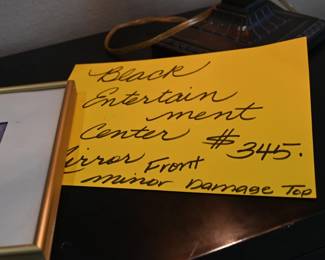 Black
Entertain
ment
Center $345.
Mirror Front
minor Damage Top